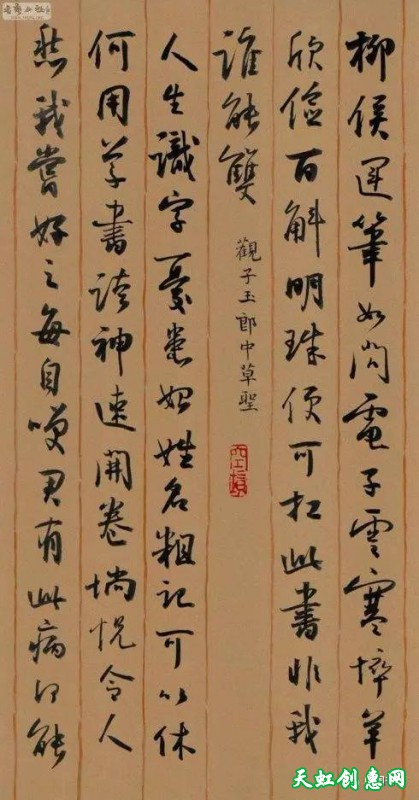 柳侯運筆如閃電子雲寒悴羊
欣儉百斛明珠便可扛此書非我
誰能雙
觀子玉郎中草聖
人生識字憂患始姓名粗記可以休
何用草書誇神速開卷惝怳令人
愁我嘗好之每自笑君有此病何能
天虹创意网